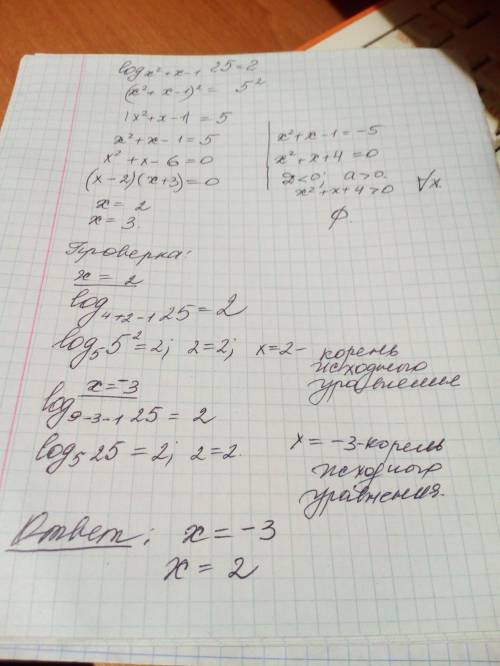 log x²+x-1 25=2
(x²+x-1)² = 5²
|x²+x-1| = 5
x²+x-1=5
x²+x-6=0
(x-2)(x+3)=0
x=2
x=3
x²+x-1=-5
x²+x+4=0
D<0; a>0.
x²+x+4>0 ∀x.
ф.
Проверка:
x=2
log 4+2-1 25=2
log₅5²=2; 2=2; x=2- корень
исходного
уравнения
x=-3
log 9-3-1 25=2
log₅25=2; 2=2.
x=-3-корель
исходного
уравнения.
Ответ: x=-3
x=2